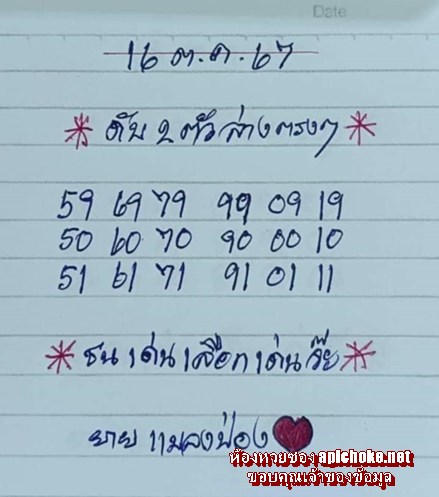 Date
16 ต.ค. 67
* ดับ 2 ตัวล่างตรงๆ *
59 69 79 99 09 19
50 60 70 90 00 10
51 61 71 91 01 11
* ชนเด่นเลือกเด่นวัย *
ยายแมลงป่อง
ห้องหวยซอง apichoke.net
ขอบคุณเจ้าของข้อมูล